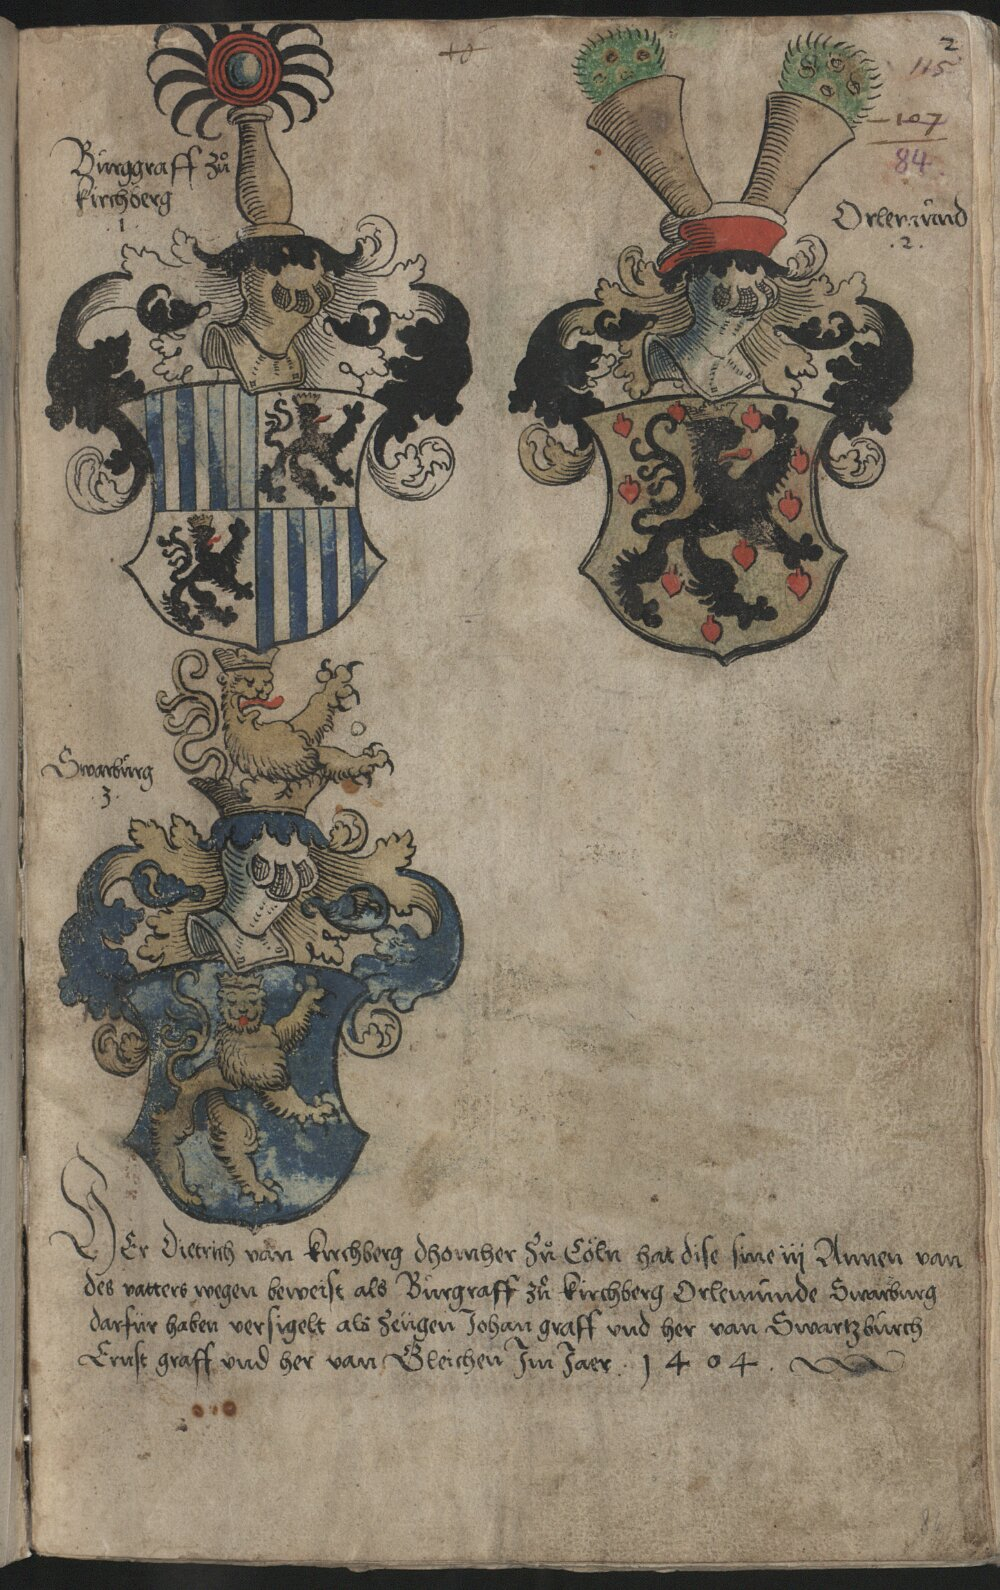 10
2
115
107
84
Bůrggraff zů
kirchberg
1
Orlemůnd
.2.
Swarbůrg
3.
HEr Dietrich van kirchberg dhomher zů Cöln hat dise sine iij Annen van
des vatters wegen beweist als Bůrgraff zů kirchberg Orlemůnde Swarbůrg
darfůr haben versigelt als zeůgen Johan graff vnd her van Swartzbůrch
Ernst graff vnd her van Gleichen Im Jaer . 1404 .